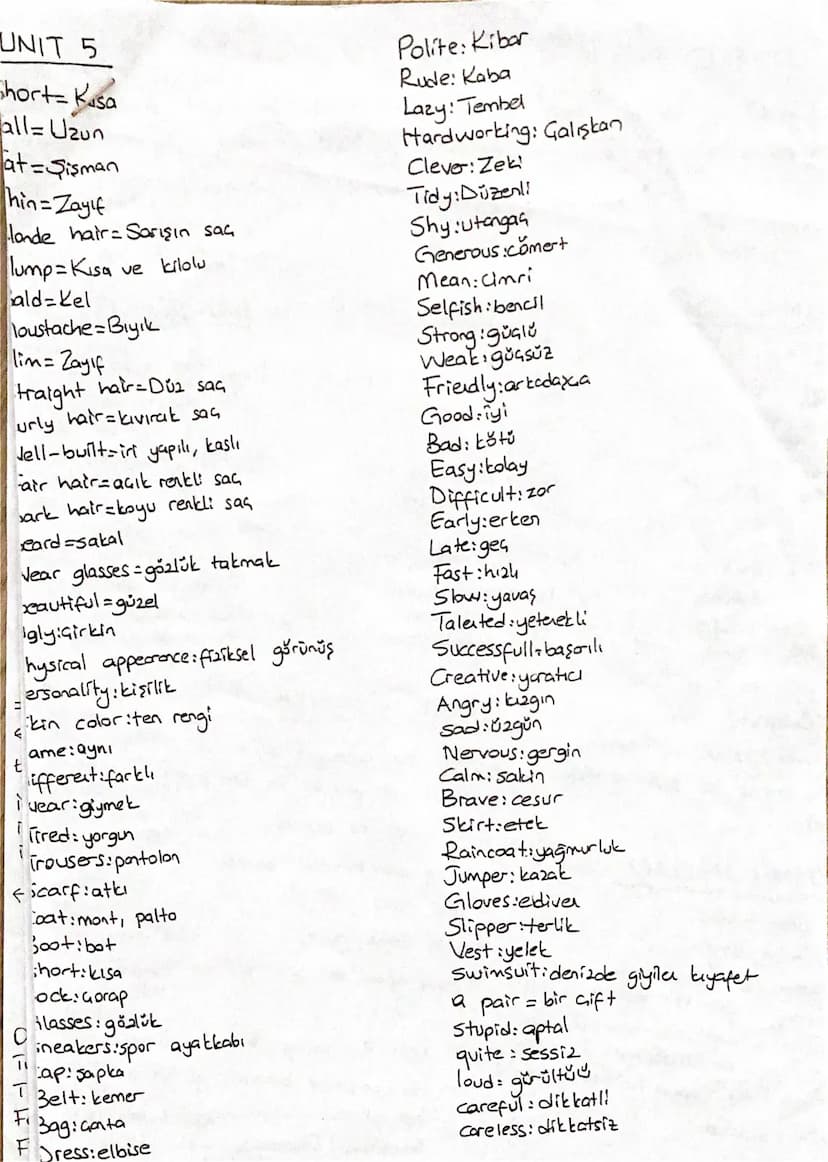 UNIT 5
hort= Kısa
all= Uzun
at=Şişman
hin=Zayıf
londe hair=Sarışın saç
lump=Kısa ve kilolu
ald=Kel
oustache=Bıyık
lim=Zayıf
traight hair=Düz saç
urly hair=kıvırcık saç
ell-built=iri yapılı, kaslı
air hair=açık renkli saç
ark hair=koyu renkli saç
eard=sakal
ear glasses=gözlük takmak
eautiful=güzel
gly:çirkin
hysical apperence:fiziksel görünüş
ersonality:kişilik
kin color:ten rengi
ame:aynı
ifferent:farklı
wear:giymek
Tired:yorgun
Trousers:pantolon
scarf:atkı
oat:mont, palto
Boot:bot
hort:kısa
ock:çorap
lasses:gözlük
ineakers:spor ayakkabı
ap:şapka
Belt:kemer
Bag:çanta
Dress:elbise
Polite:Kibar
Rude:Kaba
Lazy:Tembel
Hardworking:Çalışkan
Clever:Zeki
Tidy:Düzenli
Shy:utangaç
Generous:cömert
Mean:Cimri
Selfish:bencil
Strong:güçlü
Weak:güçsüz
Friendly:arkadaşça
Good:iyi
Bad:kötü
Easy:kolay
Difficult:zor
Early:erken
Late:geç
Fast:hızlı
Slow:yavaş
Talented:yetenekli
Successfull:başarılı
Creative:yaratıcı
Angry:kızgın
sad:üzgün
Nervous:gergin
Calm:sakin
Brave:cesur
Skirt:etek
Raincoat:yağmurluk
Jumper:kazak
Gloves:eldiven
Slipper:terlik
Vest:yelek
swimsuit:denizde giyilen kıyafet
a pair=bir çift
Stupid:aptal
quite:sessiz
loud:gürültülü
careful:dikkatli
careless:dikkatsiz